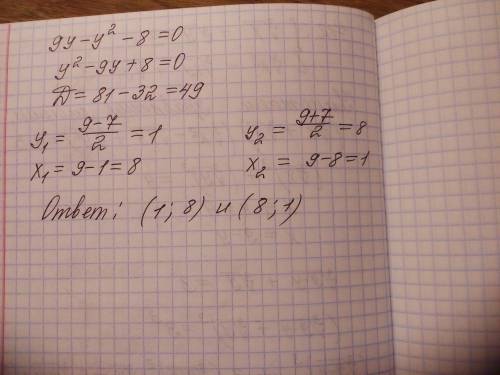 9y - y² - 8 = 0
y² - 9y + 8 = 0
D = 81 - 32 = 49
y₁ = (9-7)/2 = 1
x₁ = 9 - 1 = 8
y₂ = (9+7)/2 = 8
x₂ = 9 - 8 = 1
Ответ: (1; 8) и (8; 1)